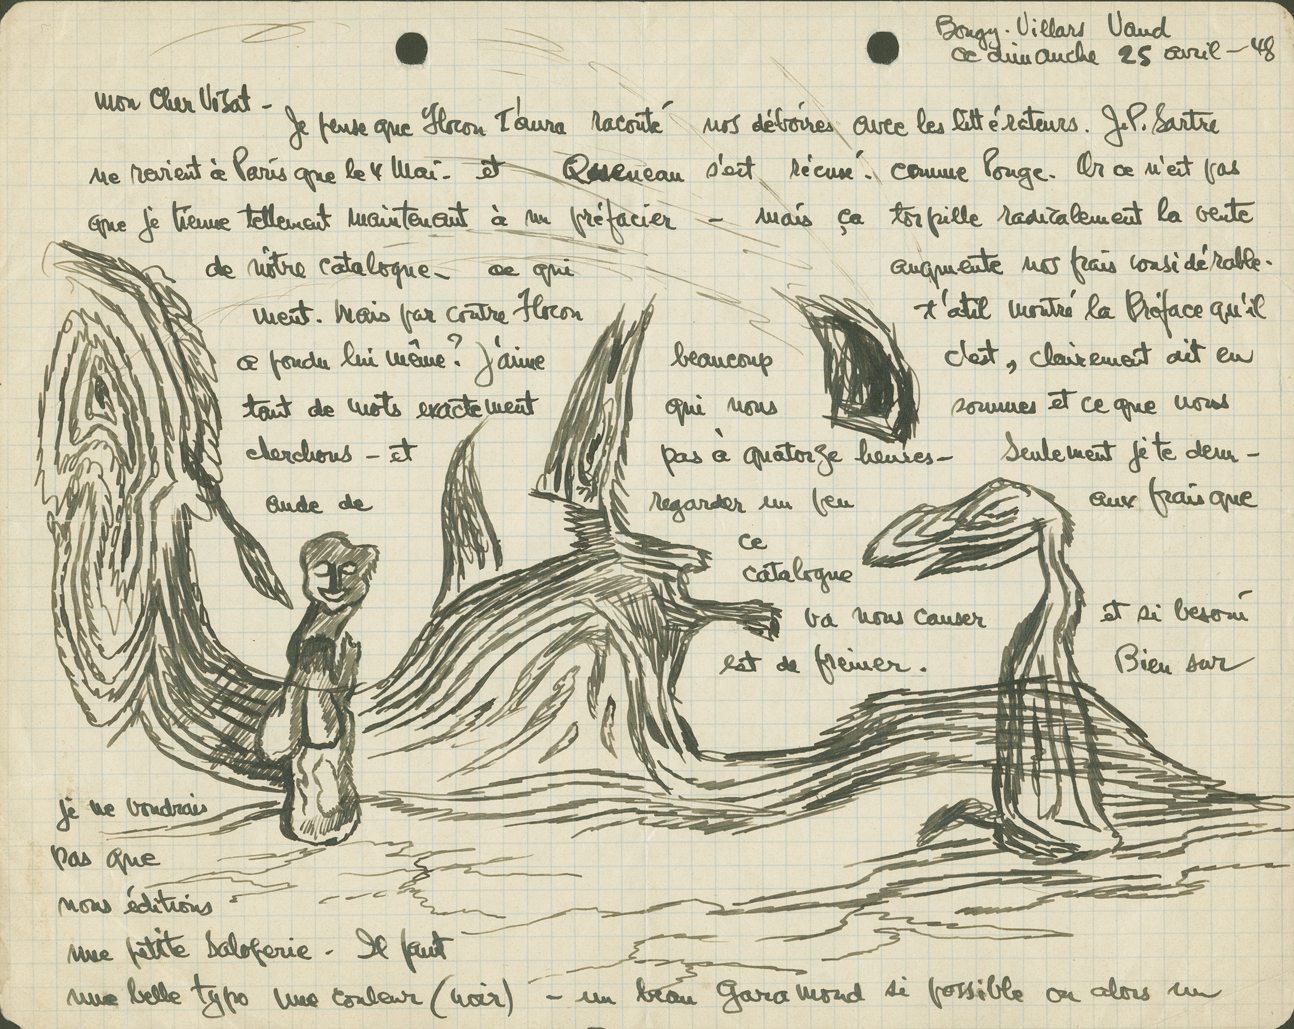 Bougy-Villars Vaud
ce dimanche 25 avril - 48
mon Cher Vo
Je pense que Flocon t'aura raconté nos déboires avec les littérateurs. J.P. Sartre
ne revient à Paris que le 4 Mai - et Queneau s'est récusé. comme Ponge. Or ce n'est pas
que je tienne tellement maintenant à un préfacier - mais ça torpille radicalement la vente
de nôtre catalogue - ce qui augmente nos frais considérable-
ment. Mais par contre Flocon t'atil montré la Préface qu'il
a pondu lui même? J'aime beaucoup c'est, clairement dit en
tant de mots exactement qui nous sommes et ce que nous
cherchons - et pas à quatorze heures - Seulement je te dem -
ande de regarder un peu aux frais que
ce
catalogue
va nous causer et si besoin
est de freiner. Bien sur
je ne voudrais
pas que
nous éditions
une petite saloperie - Il faut
une belle typo une couleur (noir) - un beau Garamond si possible ou alors un